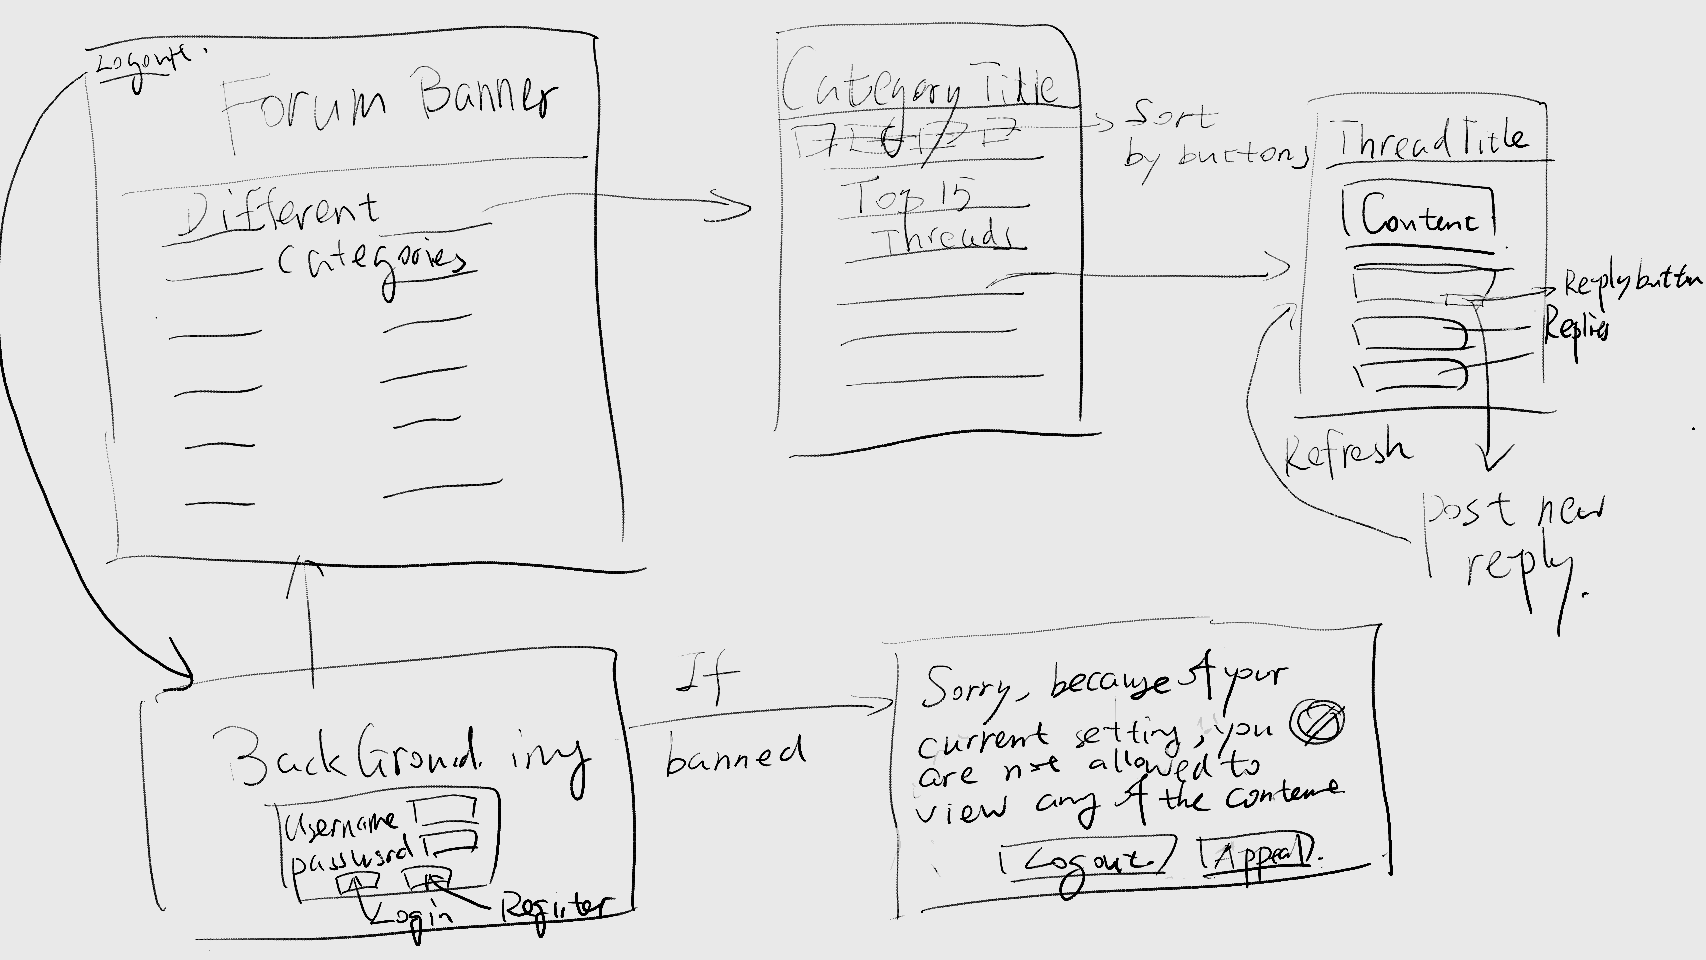 Logout.
Forum Banner
Different
Categories
Category Title
Sort
by buttons
Top 15
Threads
Thread Title
Content
Reply button
Replies
Refresh
post new
reply.
BackGround. img
Username
password
Login
Register
If
banned
Sorry, because of your
current setting, you
are not allowed to
view any of the content
Logout
Appeal.